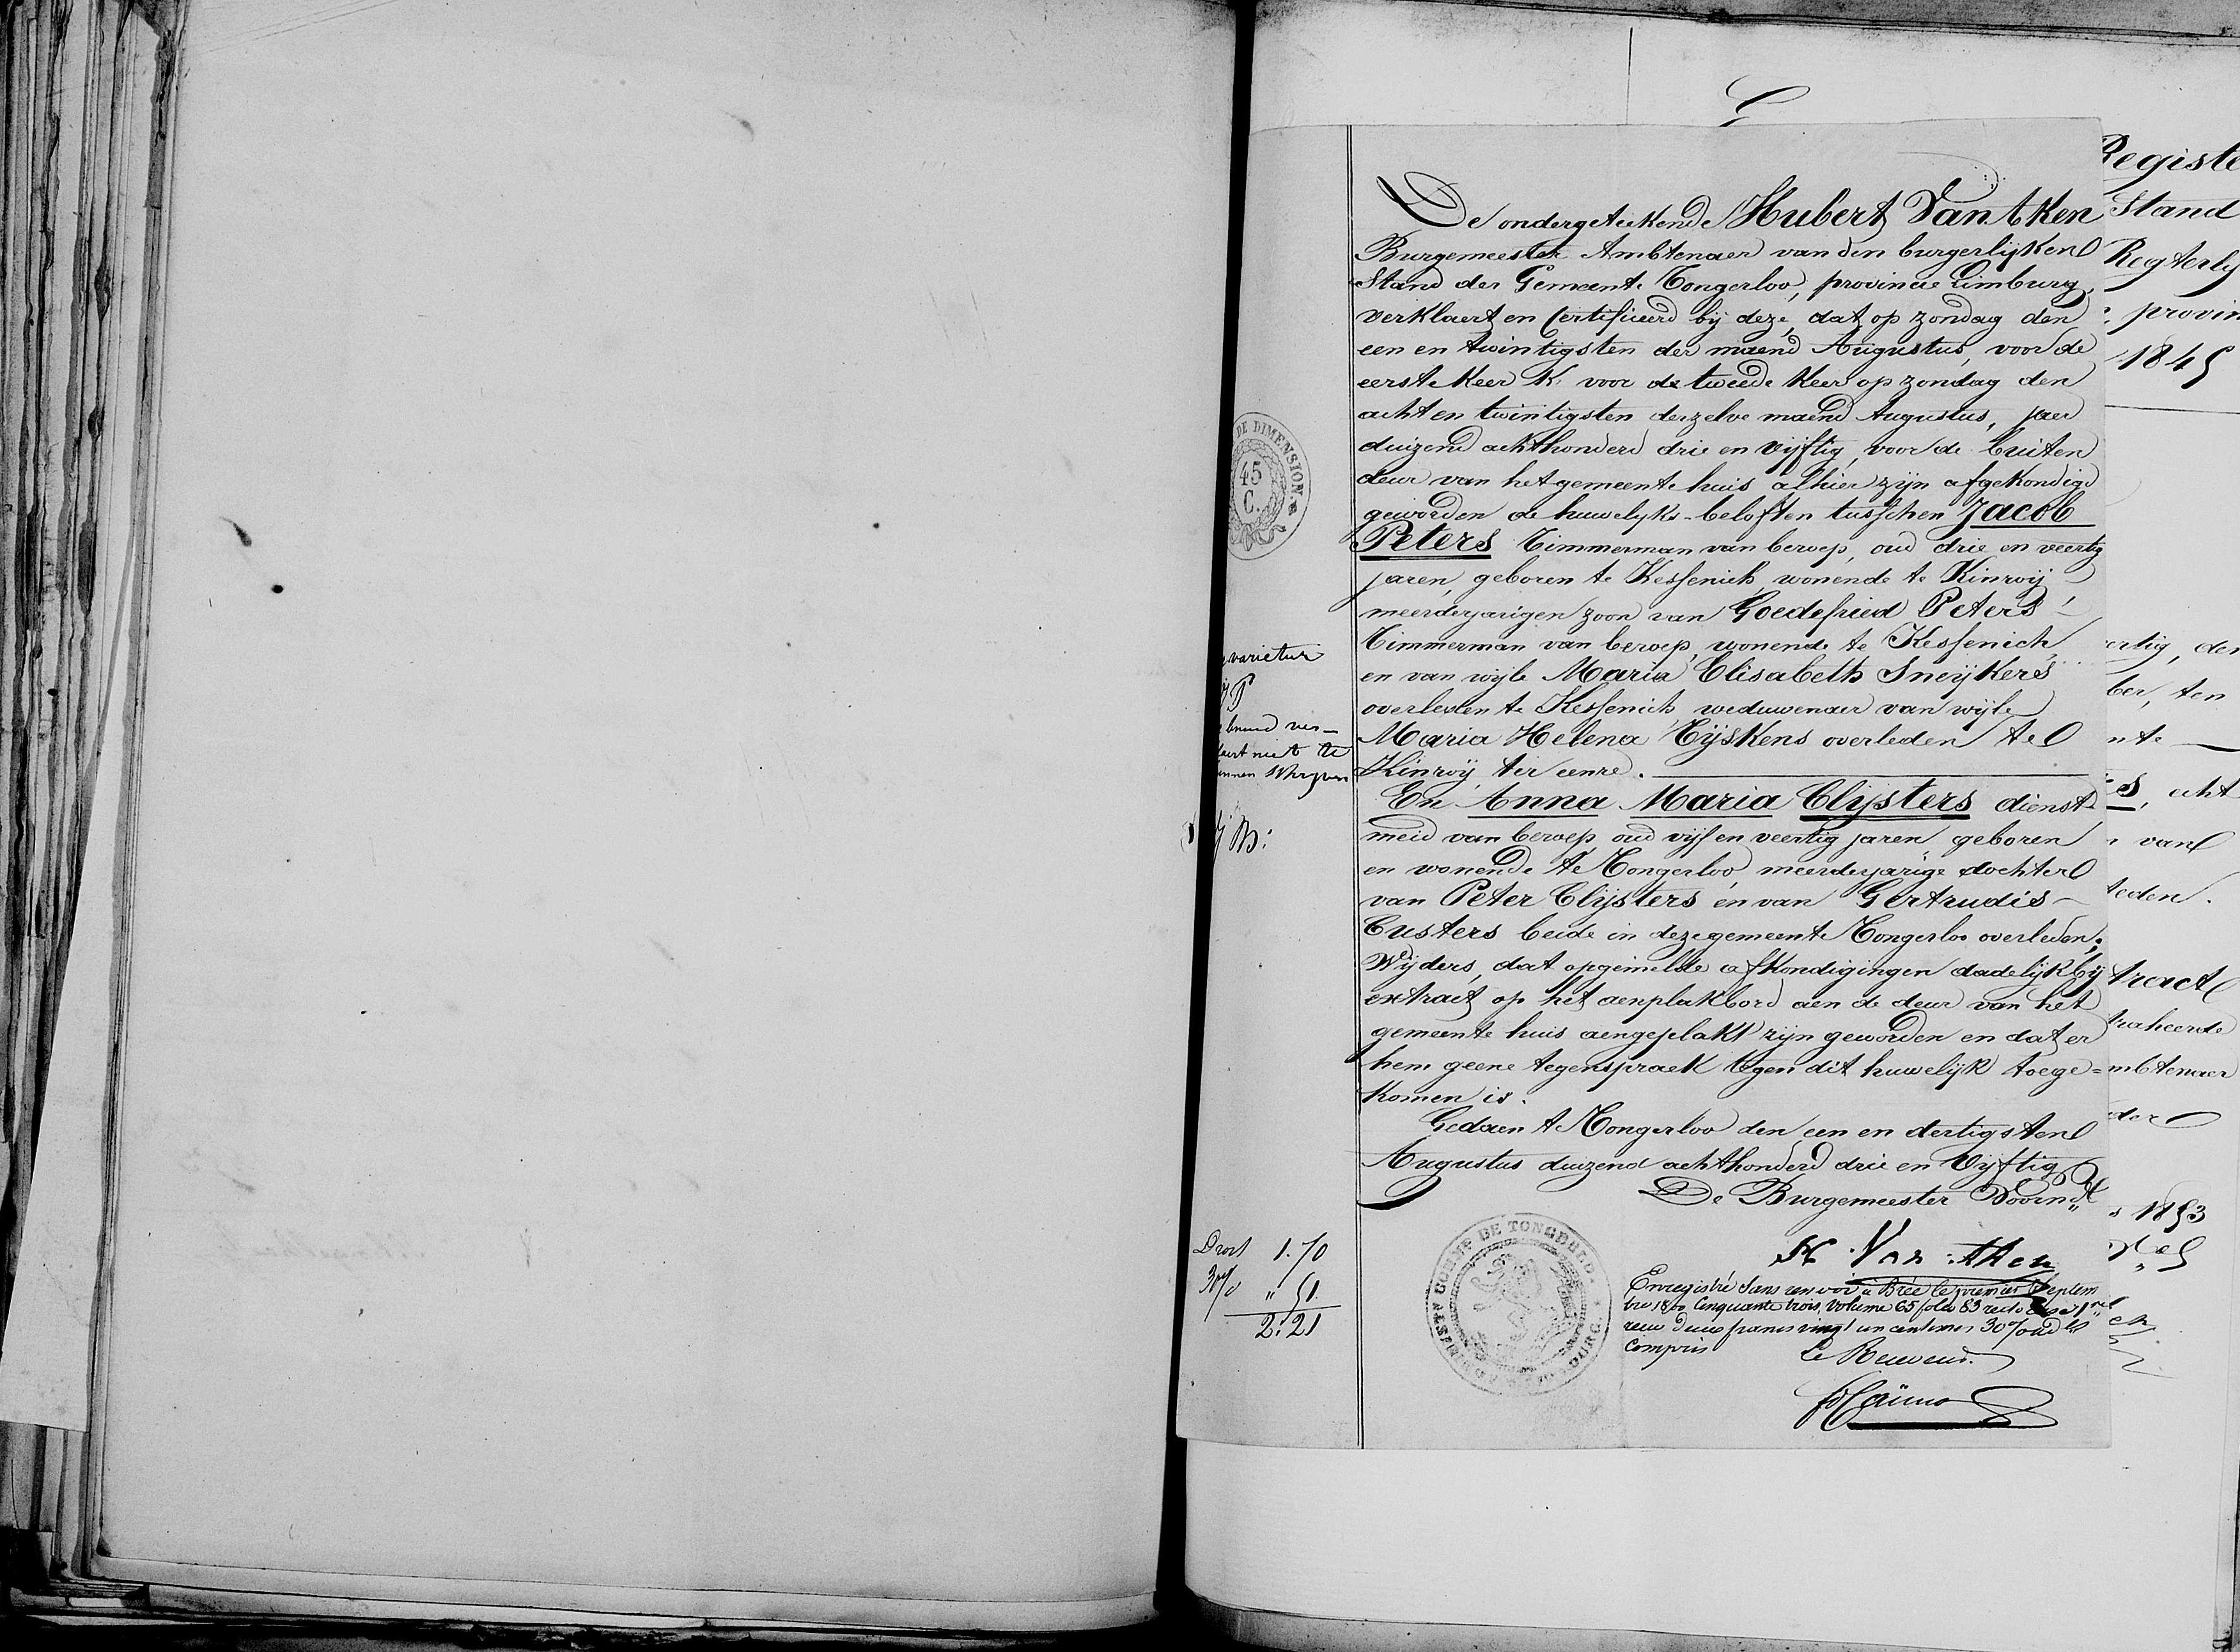 De ondergeteekende Hubert Van Aken
Burgemeester Ambtenaer van den burgerlijken
Stand der Gemeente Tongerloo, provincie Limburg,
verklaert en Certificeerd bij deze, dat op zondag den
een en twintigsten der maend Augustus, voor de
eerste keer & voor de tweede keer op zondag den
acht en twintigsten derzelve maend Augustus, jaer
duizend achthonderd drie en vijftig, voor de buiten
deur van het gemeente huis alhier zijn afgekondigd
geworden de huwelyks-beloften tusschen Jacob
Peters Timmerman van beroep, oud drie en veertig
jaren, geboren te Kessenich, wonende te Kinroij
meerderjarigen zoon van Goedefried Peters
Timmerman van beroep, wonende te Kessenich,
en van wijle Maria Elisabeth Sneijkers
overleden te Kessenich, weduwenaer van wijle
Maria Helena Tijskens overleden te
Kinroij, ter eenre.
En Anna Maria Clijsters dienst-
meid van beroep, oud vijf en veertig jaren geboren
en wonende te Tongerloo, meerderjarige dochter
van Peter Clijsters en van Gertrudis
Custers beide in deze gemeente Tongerloo overleden;
Wijders, dat opgemelde afkondigingen dadelijk bij
extract op het aenplakbord aen de deur van het
gemeente huis aengeplakt zijn geworden en dat er
hem geene tegenspraek tegen dit huwelijk toege=
komen is.
Gedaen te Tongerloo den een en dertigsten
Augustus duizend achthonderd drie en vijftig
De Burgemeester Voornd
H Van Aken
Enregistré sans renvoi à Brée le premier Septem
bre 1800 Cinquante trois, volume 65 folio 83 recto case 1re
reçu deux francs vingt un centimes 30 % add ls
Compris
Le Receveur.
DE DIMENSION.
45
C.
varietur
P
bruid ver-
niet te
Droit 1.70
30 % " 51.
2.21
COMMNE DE TONGERLO
Registe
Stand
Regterly
provin
1845
ertig, der
ber, ten
nte
s, echt
van
leden.
tract
traheerde
mbtenaer
der
1853